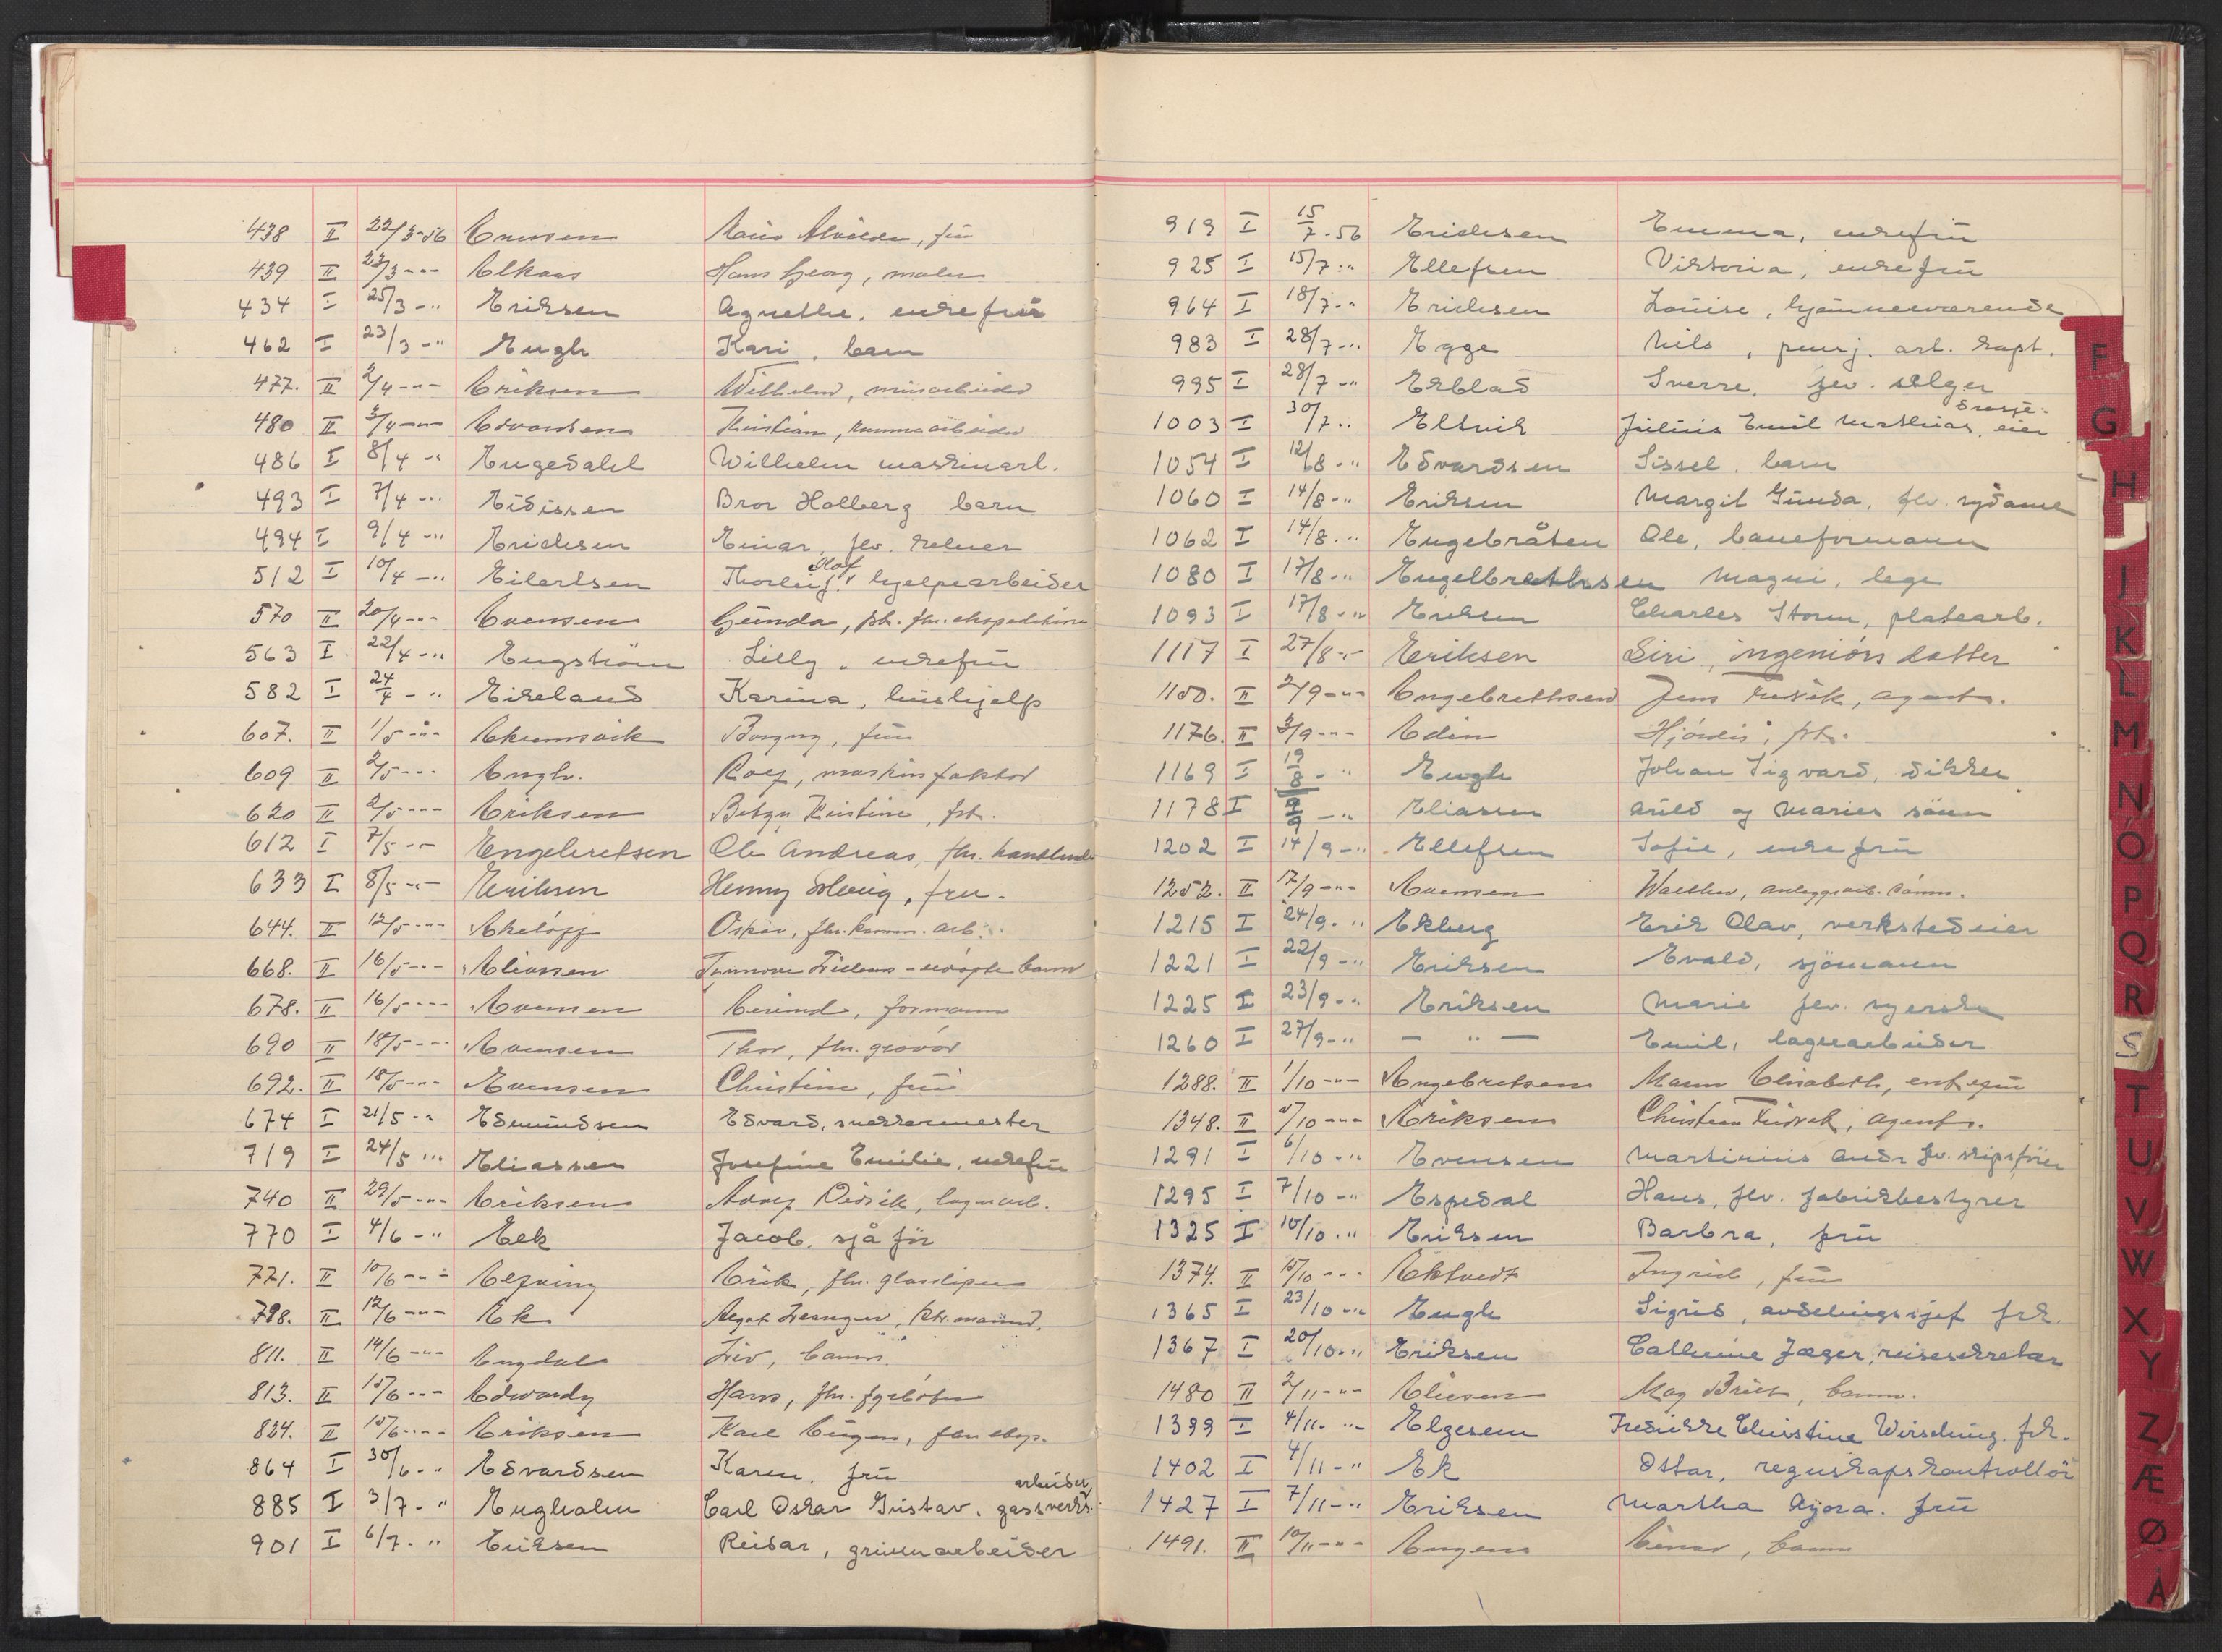 438 II 22/3-56 Evensen fru
439 II 23/3 -"- Elkaas Hans Georg, maler
434 I 25/3 -" Eriksen Agnethe, enkefrue
462 I 23/3 -" Engh Kari, barn
477. II 2/4 -"- Eriksen Wilhelm, minearbeider
480 II 3/4 -"- Edvardsen Kristian, kommunearbeider
486 I 8/4 -" Engedahl Wilhelm maskinarb.
493 I 7/4 -" Eidissen Bror Holberg barn
494 I 9/4 -" Erichsen Einar, fhv. kelner
512 I 10/4 -" Eilertsen Thorleif Olaf hjelpearbeider
570 II 20/4 -"- Evensen Gunda, frk. fhv. ekspeditrise
563 I 22/4 -" Engström Lilly, enkefru
582 I 24/4 -" Eikeland Karina, hushjelp
607. II 1/5 -"- Ekrumsvik Borgny, fru
609 II 2/5 -"- Engh. Rolf, maskinfaktor
620 II 2/5 -"- Eriksen Betzy Kristine, frk.
612 I 7/5 -" Engebretsen Ole Andreas, fhv. handlende
633 I 8/5 -"- Eriksen Henny Solveig, fru.
644. II 12/5 -"- Ekelöff Oskar, fhv. komm. arb.
668. II 16/5 -"- Eliassen udöpte barn
678. II 16/5 -"- Evensen Eivind, formann
690 II 18/5 -"- Evensen Thor, fhv. gravør
692. II 18/5 -"- Evensen Christine, fru
674 I 21/5 -" Edmundsen Edvard, snekkermester
719 I 24/5 -" Eliassen Josefine Emilie, enkefru
740 II 29/5 -"- Eriksen Adolf Didrik, lagerarb.
770 I 4/6 -" Eek Jacob, sjåför
771. II 10/6 -"- Erik, fhv. glassliper
798. II 12/6 -"- Ek
811. II 14/6 -"- Engdal Liv, barn
813. II 15/6 -"- Edwardy Hans, fhv. fyrböter
824. II 15/6 -"- Eriksen Karl Eugen, fhv. eksp.
864 I 30/6 -" Edvardsen Karen, fru
885 I 3/7 -" Engholm Carl Oskar Gustav, gassverks- arbeider,
901 I 6/7 -" Eriksen Reidar, grünnarbeider
919 I 15/7 -56 Erichsen Emma, enkefrü
925 I 15/7 -" Ellefsen Viktoria, enkefrü
964 I 18/7 -" Erichsen Louise, hjemmeværende
983 I 28/7 -" Egge Nils, pensj. art. kapt.
995 I 28/7 -" Ekblad Sverre, fhv. selger
1003 I 30/7 -" Eltvik Julius Emil Mathias, drosje- eier
1054 I 12/8 -" Edvardsen Sissel, barn
1060 I 14/8 -" Eriksen Margit Gunda, fhv. sydame
1062 I 14/8 -" Engebråten Ole, baneformann
1080 I 17/8 -" Engelbrethsen Magni, lege
1093 I 17/8 -" Eriksen Charles Storm, platearb.
1117 I 27/8 -" Eriksen Siri, ingeniörs datter
1150. II 2/9 -"- Engebrethsen Jens Fredrik, agent.
1176. II 3/9 -"- Edin Hjördis, frk.
1169 I 19/8 -" Engh Johan Sigvard, dikker
1178 I 9/9 -" Eliassen Arild og Maries sönn
1202 I 14/9 -" Ellefsen Sofie, enkefrü
1252. II 17/9 -"- Evensen anleggsarb. sönn.
1215 I 24/9 -" Ekberg Erik Olav, verkstedeier
1221 I 22/9 -" Eriksen Evald, sjömann
1225 I 23/9 -" Eriksen Marie fhv. syerske
1260 I 27/9 -" — " — Emil, lagerarbeider
1288. II 1/10 -"- Engebretsen Maren Elisabeth, enkefru
1348. II 5/10 -"- Eriksen Christian Fredrik, agent.
1291 I 6/10 -" Evensen Martinius Andr. fhv. skipsfører
1295 I 7/10 -" Espedal Hans, fhv. fabrikbestyrer
1325 I 10/10 -" Eriksen Barbra, frü
1374. II 15/10 -"- Ektvedt Ingrid, fru
1365 I 23/10 -" Engh Sigrid, avdelingssjef frk.
1367 I 20/10 -" Eriksen Cathrine Jæger, reisesekretær
1480 II 2/11 -"- Eliesen May Britt, barn.
1399 I 4/11 -" Elgesem Fredrikke Christine Wirsching. frk.
1402 I 4/11 -" Ek Ottar, regnskapskontrollör
1427 I 7/11 -" Eriksen Martha Gjøra. frü
1491. II 10/11 -"- Engens Einar, barn
F
G
H
J
K
L
M
N
O
P
Q
R
S
T
U
V
W
X
Y
Z
Æ
Ø
Å